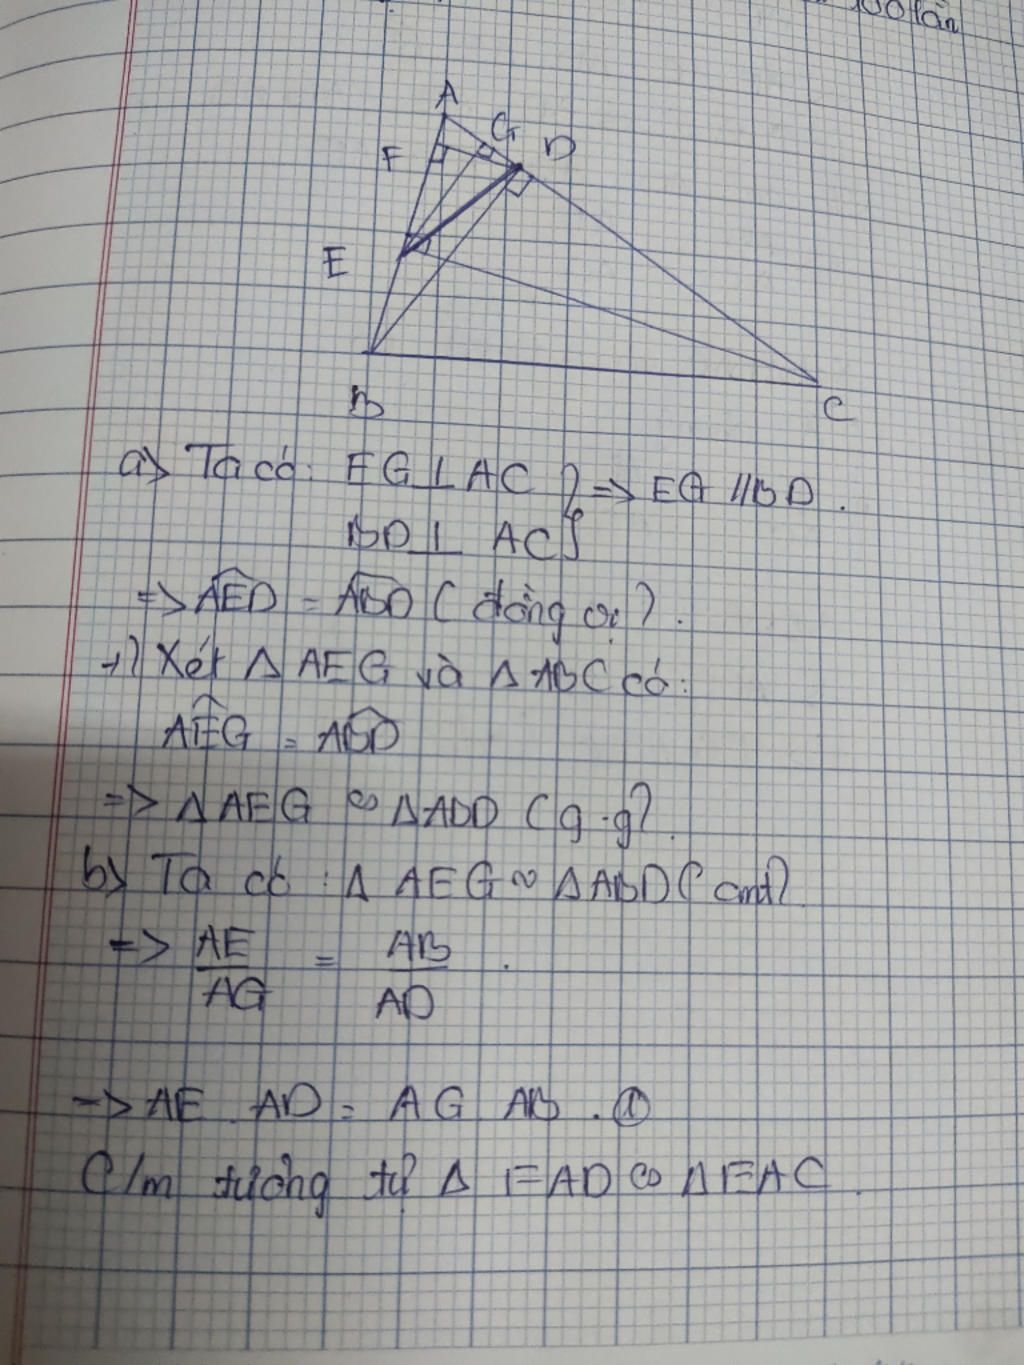 100 lần
A
G
D
F
E
B
C
a) Ta có: EG ⊥ AC } => EG // BD.
BD ⊥ AC
=> AED = ABD (đồng vị).
+) Xét Δ AEG và Δ ABC có:
AEG = ABD
=> Δ AEG ∽ Δ ABD (g.g).
b) Ta có: Δ AEG ∽ Δ ABD (cmt)
=> AE/AG = AB/AD.
-> AE . AD = AG . AB . ①
C/m tương tự Δ FAD ∽ Δ EAC.